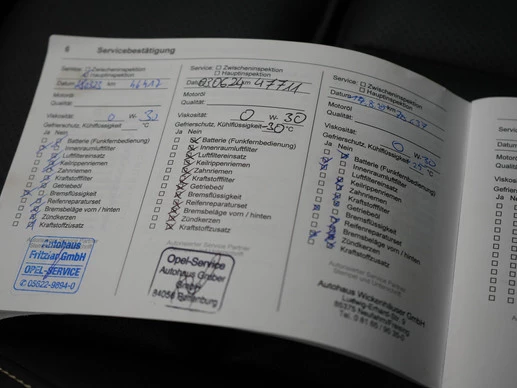 6 Servicebestätigung
Service: Zwischeninspektion
Hauptinspektion
Datum km
Motoröl
Qualität:
Viskosität: 0 W- 30
Gefrierschutz, Kühlflüssigkeit °C
Ja Nein
Batterie (Funkfernbedienung)
Innenraumluftfilter
Luftfiltereinsatz
Keilrippenriemen
Zahnriemen
Kraftstofffilter
Getriebeöl
Bremsflüssigkeit
Reifenreparaturset
Bremsbeläge vorn / hinten
Zündkerzen
Kraftstoffzusatz
Autohaus
Fritzlar GmbH
OPEL-SERVICE
05622-9894-0
Service: Zwischeninspektion
Hauptinspektion
Datum 030624 km 47711
Motoröl
Qualität:
Viskosität: 0 W- 30
Gefrierschutz, Kühlflüssigkeit -30 °C
Ja Nein
Batterie (Funkfernbedienung)
Innenraumluftfilter
Luftfiltereinsatz
Keilrippenriemen
Zahnriemen
Kraftstofffilter
Getriebeöl
Bremsflüssigkeit
Reifenreparaturset
Bremsbeläge vorn / hinten
Zündkerzen
Kraftstoffzusatz
Autorisierter Service Partner
Opel-Service
Autohaus
GmbH
Service: Zwischeninspektion
Hauptinspektion
Datum
Motoröl
Qualität:
Viskosität: 0 W- 30
Gefrierschutz, Kühlflüssigkeit °C
Ja Nein
Batterie (Funkfernbedienung)
Innenraumluftfilter
Luftfiltereinsatz
Keilrippenriemen
Zahnriemen
Kraftstofffilter
Getriebeöl
Bremsflüssigkeit
Reifenreparaturset
Bremsbeläge vorn / hinten
Zündkerzen
Kraftstoffzusatz
Autorisierter Service Partner
Stempel und Unterschrift
Autohaus Wickenhäuser GmbH
Ludwig-Erhard-Str. 9
85375 Neufahrn/Freising